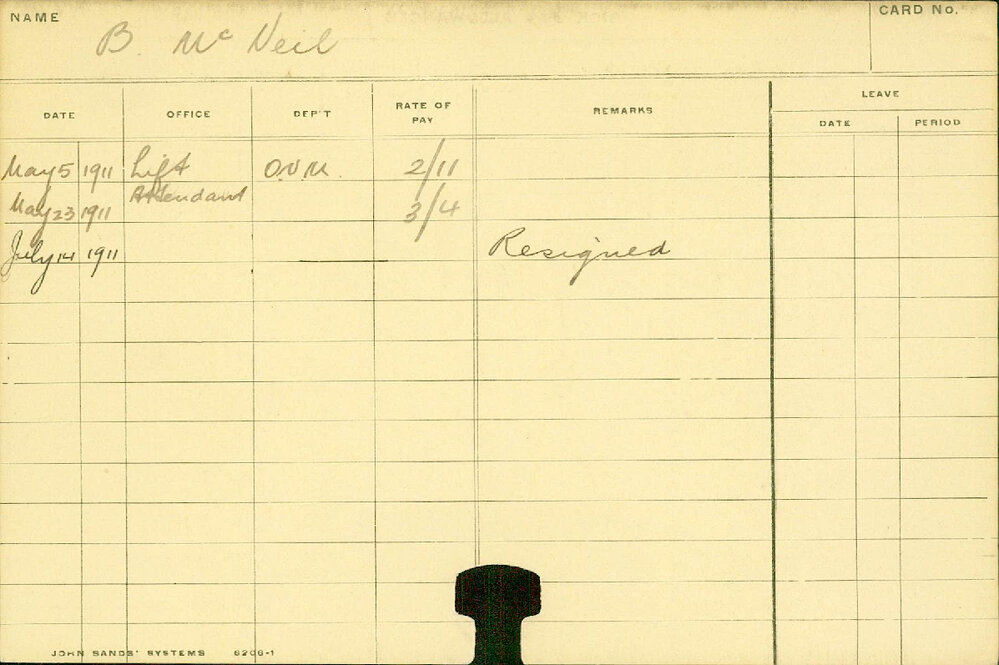 NAME B. McNeil CARD No.
DATE OFFICE DEP'T RATE OF PAY REMARKS LEAVE
DATE PERIOD
May 5 1911 Lift O.V.M. 2/11
May 23 1911 Attendant 3/4
July 14 1911 Resigned
JOHN SANDS' SYSTEMS 6206-1